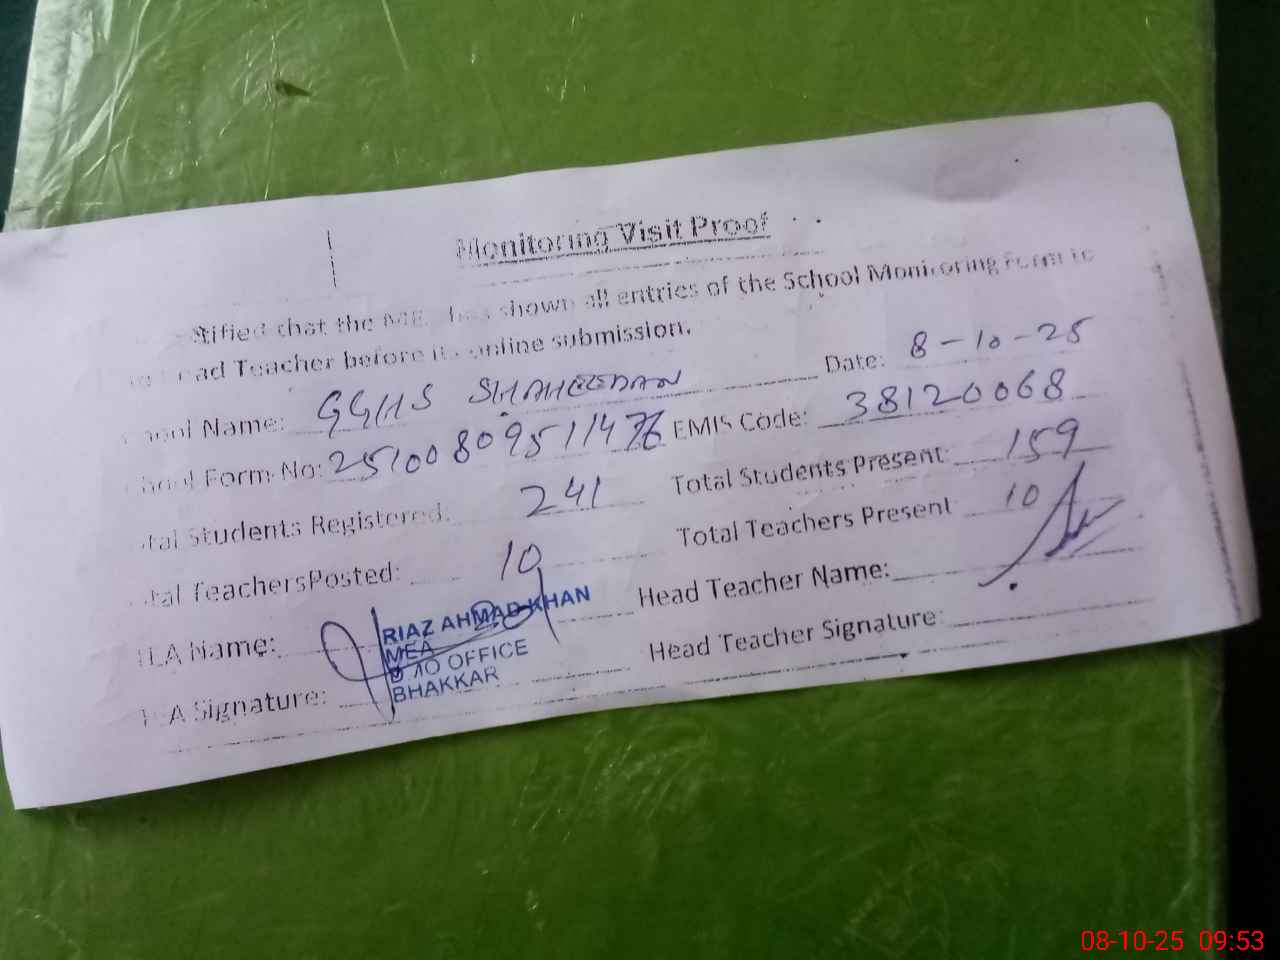 Monitoring Visit Proof
tified that the MEA has shown all entries of the School Monitoring Form to
ead Teacher before its online submission.
Date: 8-10-25
ool Name: GGHS SHAHEEDAN
EMIS Code: 38120068
ool Form No: 251008095114
Total Students Present: 159
tal Students Registered: 241
Total Teachers Present 10
tal TeachersPosted: 10
Head Teacher Name:
EA Name:
RIAZ AHMAD KHAN
MEA
OFFICE
BHAKKAR
Head Teacher Signature:
EA Signature:
08-10-25 09:53